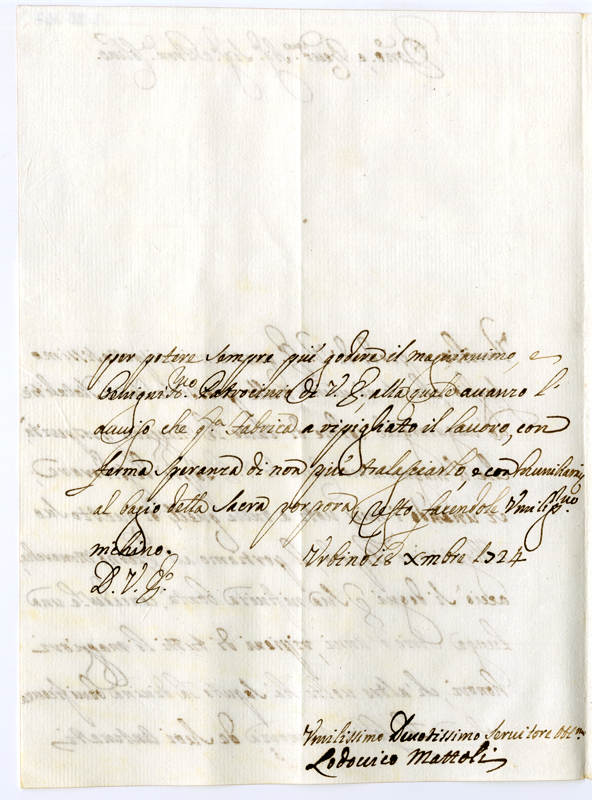 per potere sempre più godere il magnanimo, e
benignis.mo Patrocinio di V. E., alla quale auanzo l'
auuiso che q.a Fabrica a ripigliato il lauoro, con
ferma speranza di non più tralasciarlo, e con
al bagio della Sacra porpora, resto facendole Vmiliss.mo
inchino.
Vrbino 18 Xmbre 1724
D. V. E.
Vmilissimo Deuotissimo Seruitore
Lodouico Mattoli